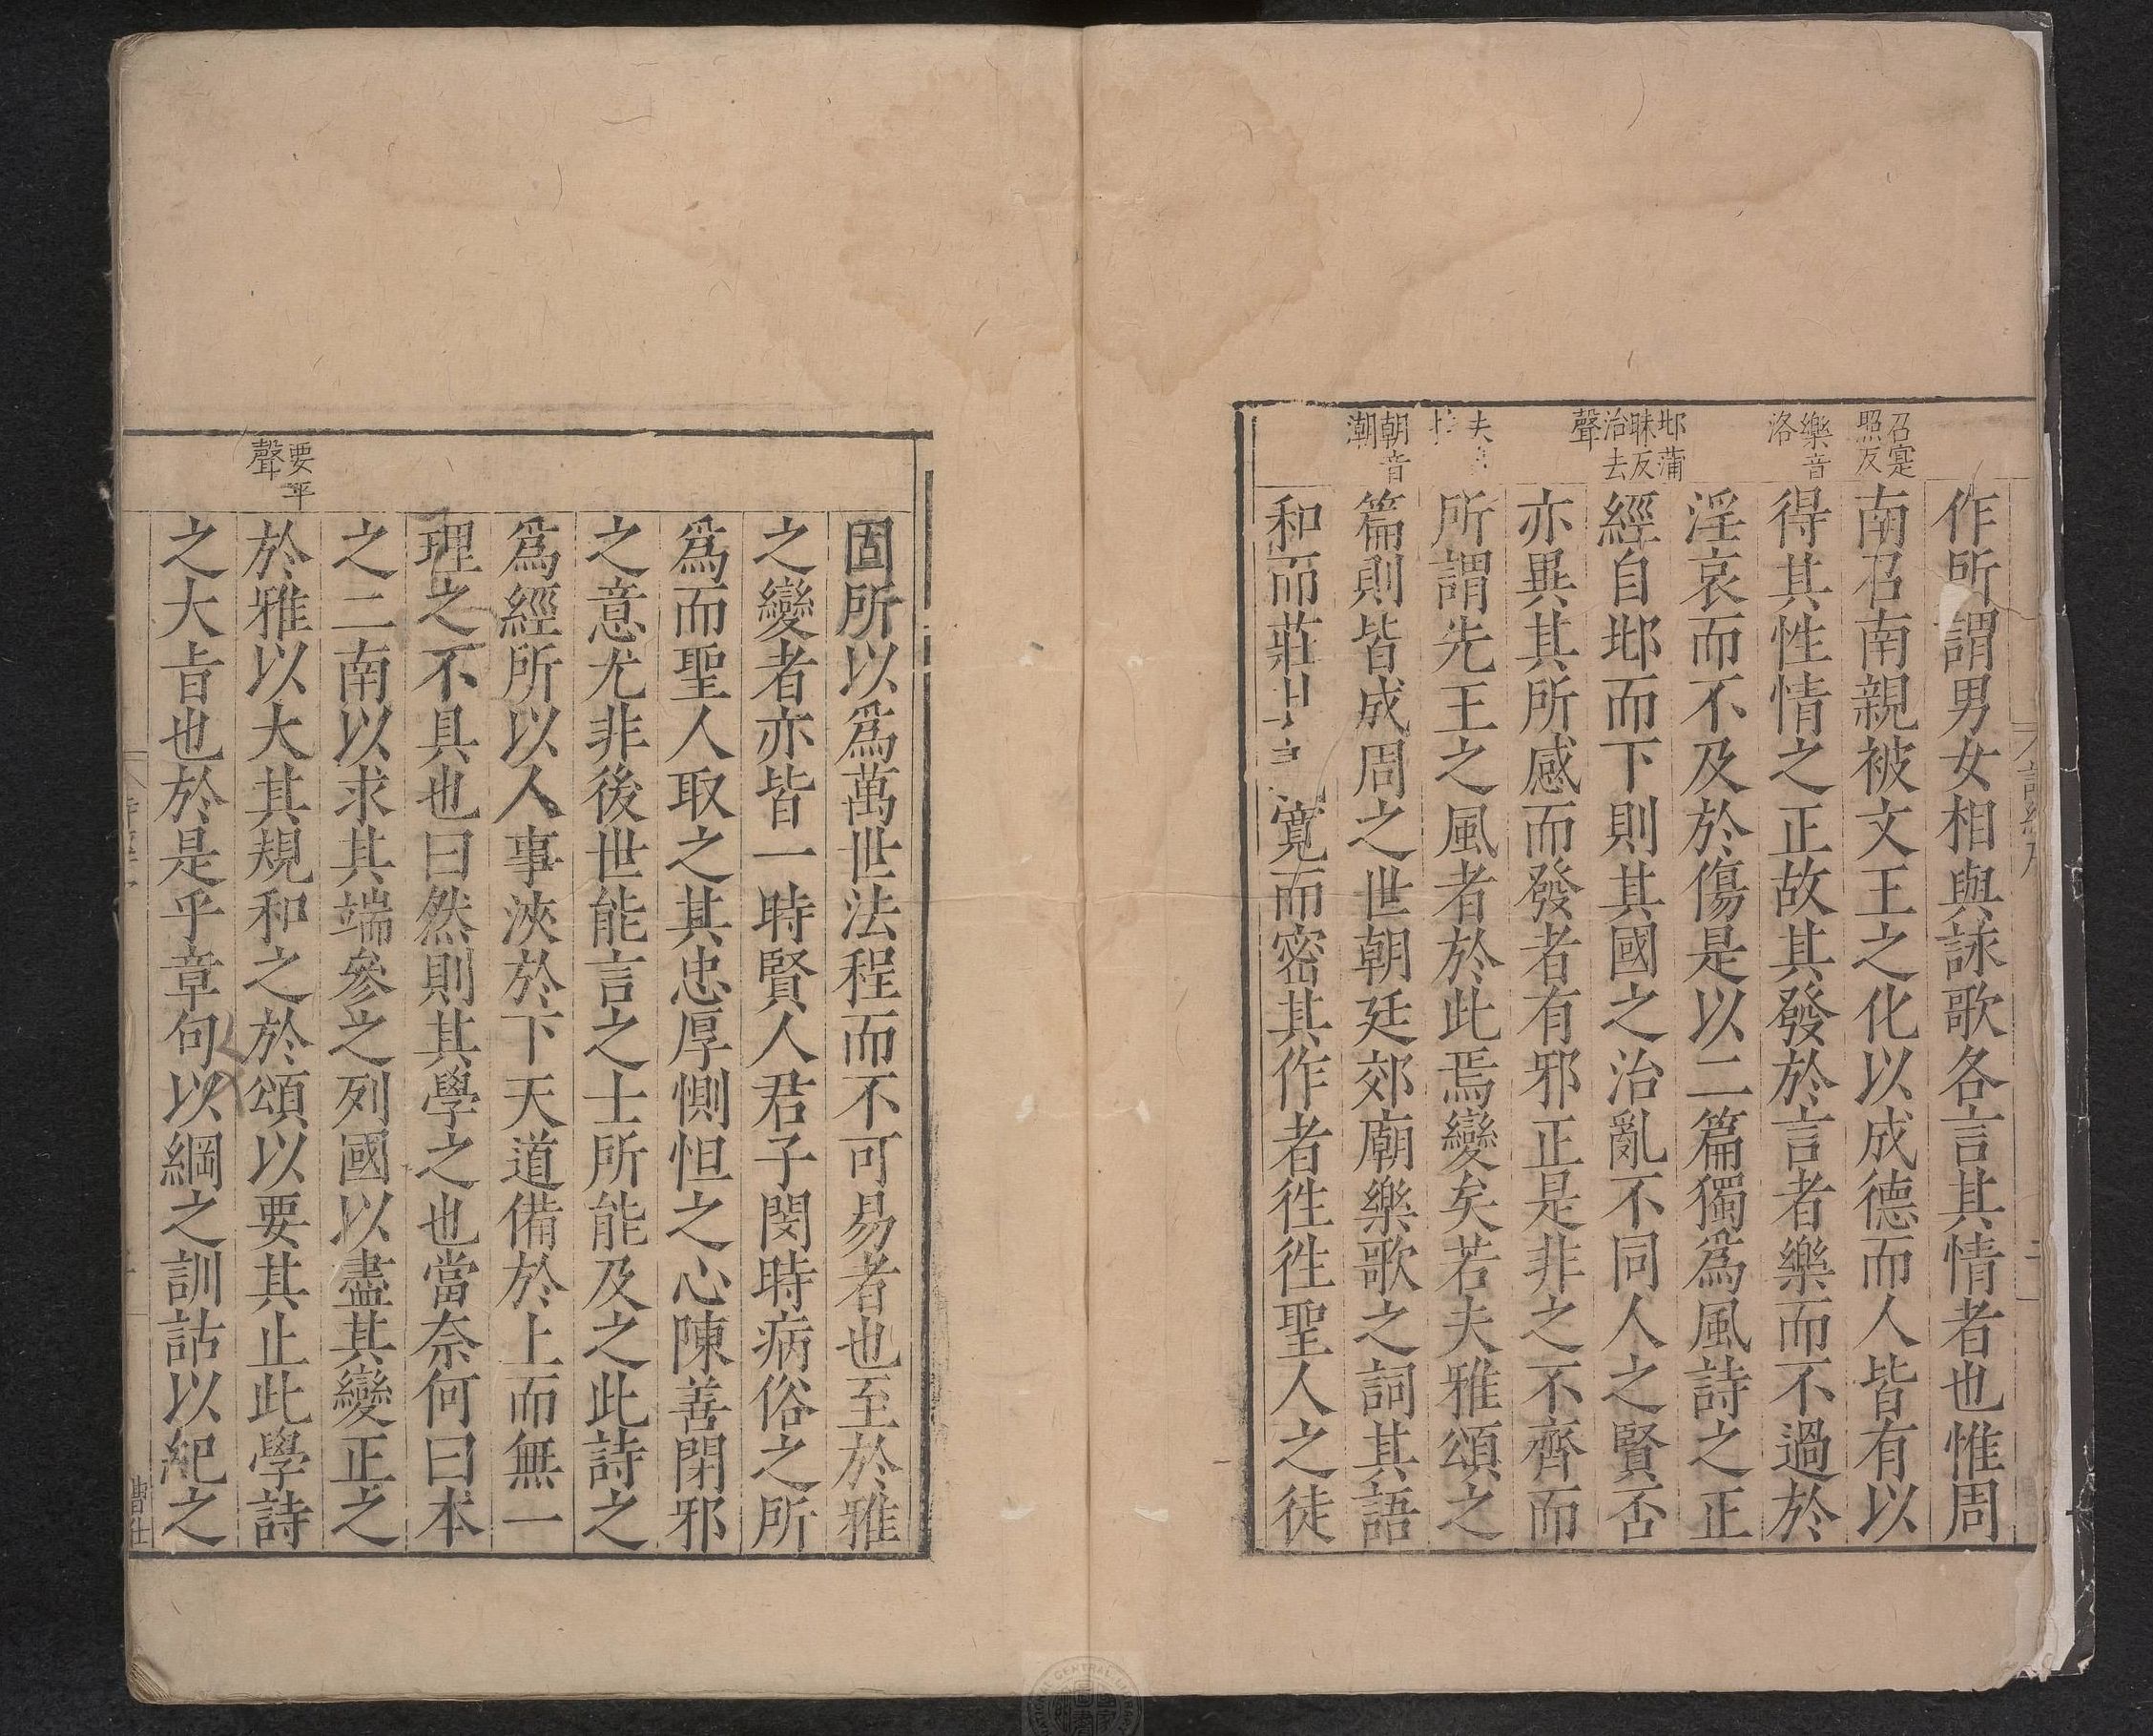 召寔
照反
樂音
洛
邶蒲
昧反
治去
聲
夫
朝音
潮
作所謂男女相與詠歌各言其情者也惟周
南召南親被文王之化以成德而人皆有以
得其性情之正故其發於言者樂而不過於
淫哀而不及於傷是以二篇獨為風詩之正
經自邶而下則其國之治亂不同人之賢否
亦異其所感而發者有邪正是非之不齊而
所謂先王之風者於此焉變矣若夫雅頌之
篇則皆成周之世朝廷郊廟樂歌之詞其語
和而莊其寬而密其作者徃徃聖人之徒
要平
聲
固所以為萬世法程而不可易者也至於雅
之變者亦皆一時賢人君子閔時病俗之所
為而聖人取之其忠厚惻怛之心陳善閉邪
之意尤非後世能言之士所能及之此詩之
為經所以人事浹於下天道備於上而無一
理之不具也曰然則其學之也當奈何曰本
之二南以求其端參之列國以盡其變正之
於雅以大其規和之於頌以要其止此學詩
之大旨也於是乎章句以綱之訓詁以紀之